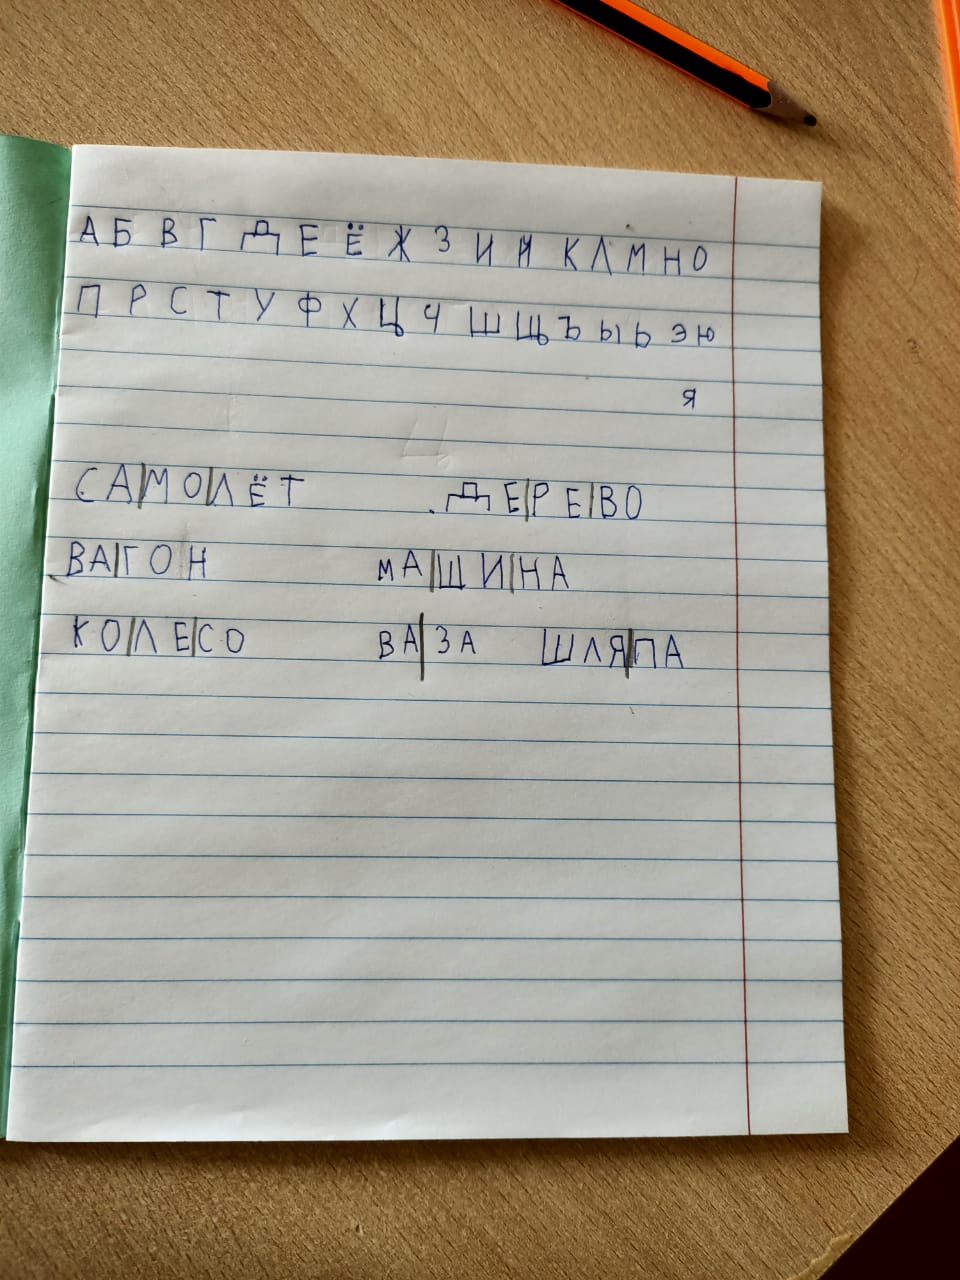 А Б В Г Д Е Ё Ж З И Й К Л М Н О
П Р С Т У Ф Х Ц Ч Ш Щ Ъ Ы Ь Э Ю
Я
СА|МО|ЛЁТ ДЕ|РЕ|ВО
ВА|ГОН МА|ШИ|НА
КО|ЛЕ|СО ВА|ЗА ШЛЯ|ПА